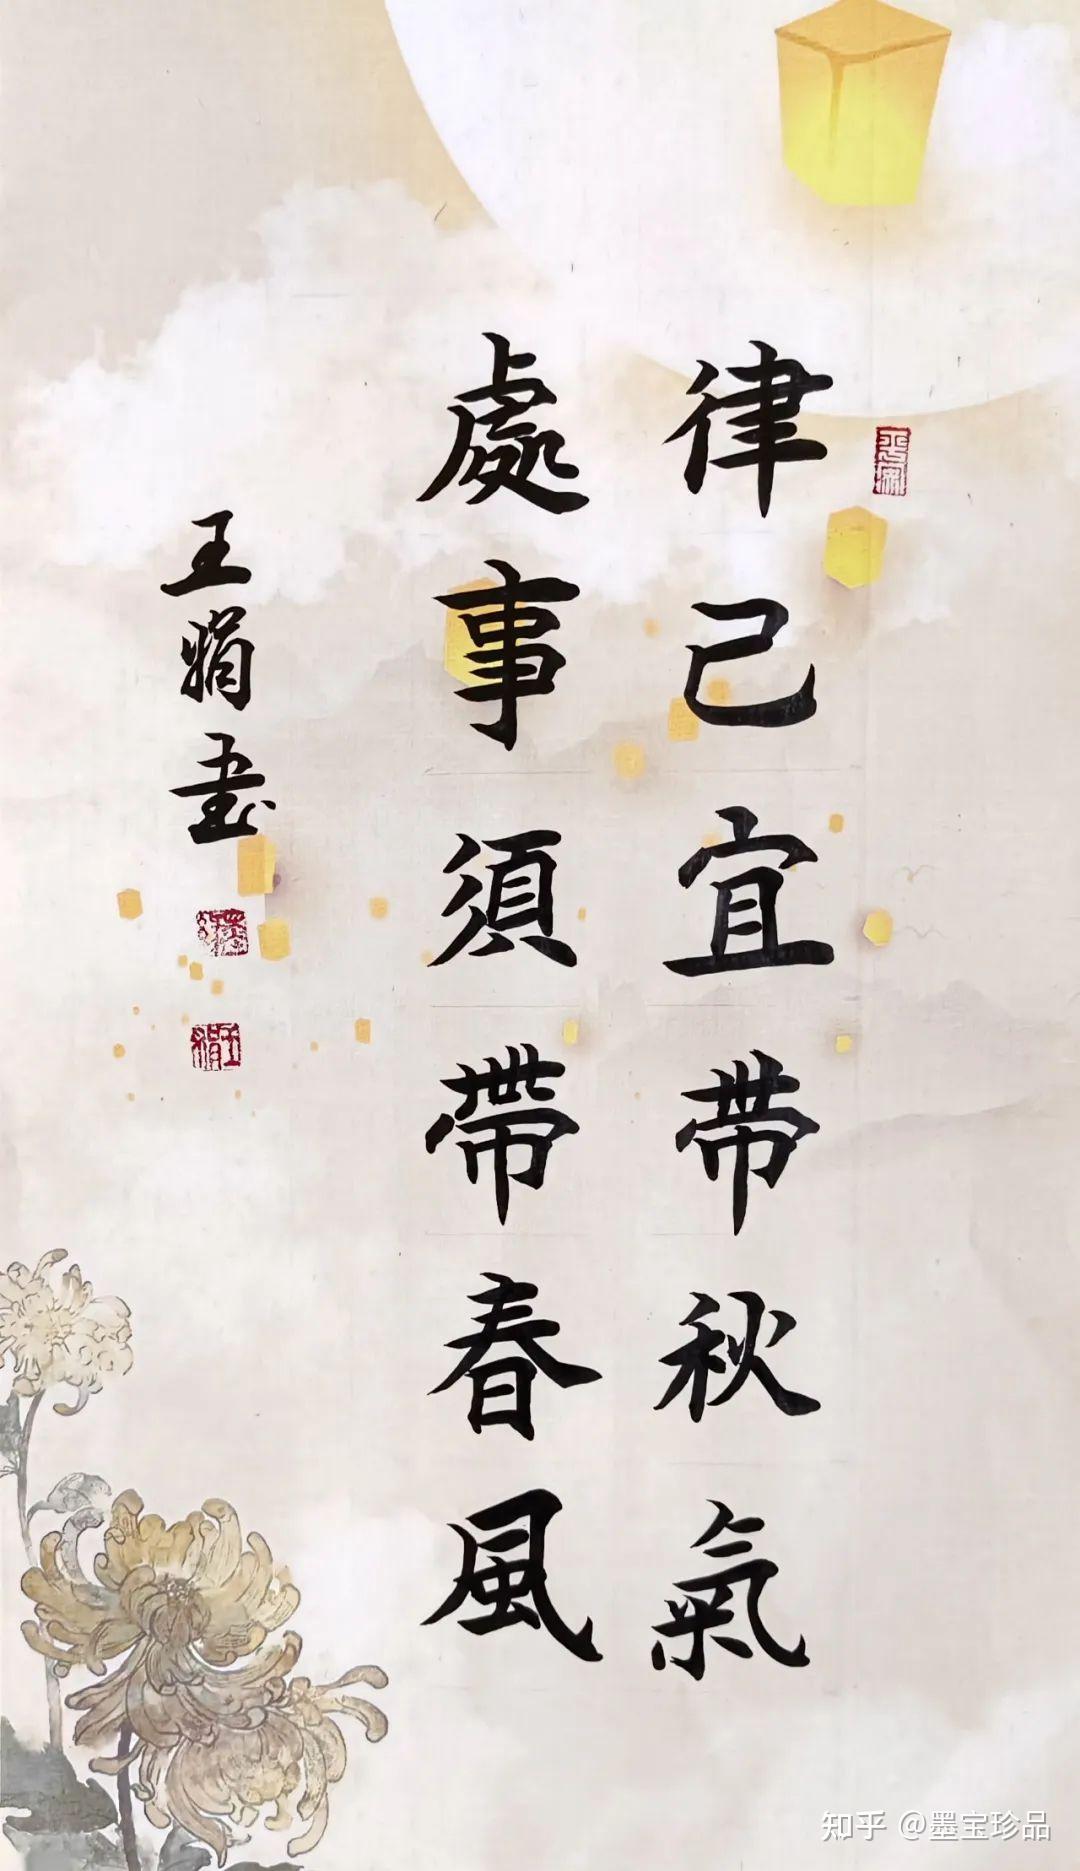 律己宜带秋氣
處事須帶春風
王娟書
王娟
知乎 @墨宝珍品